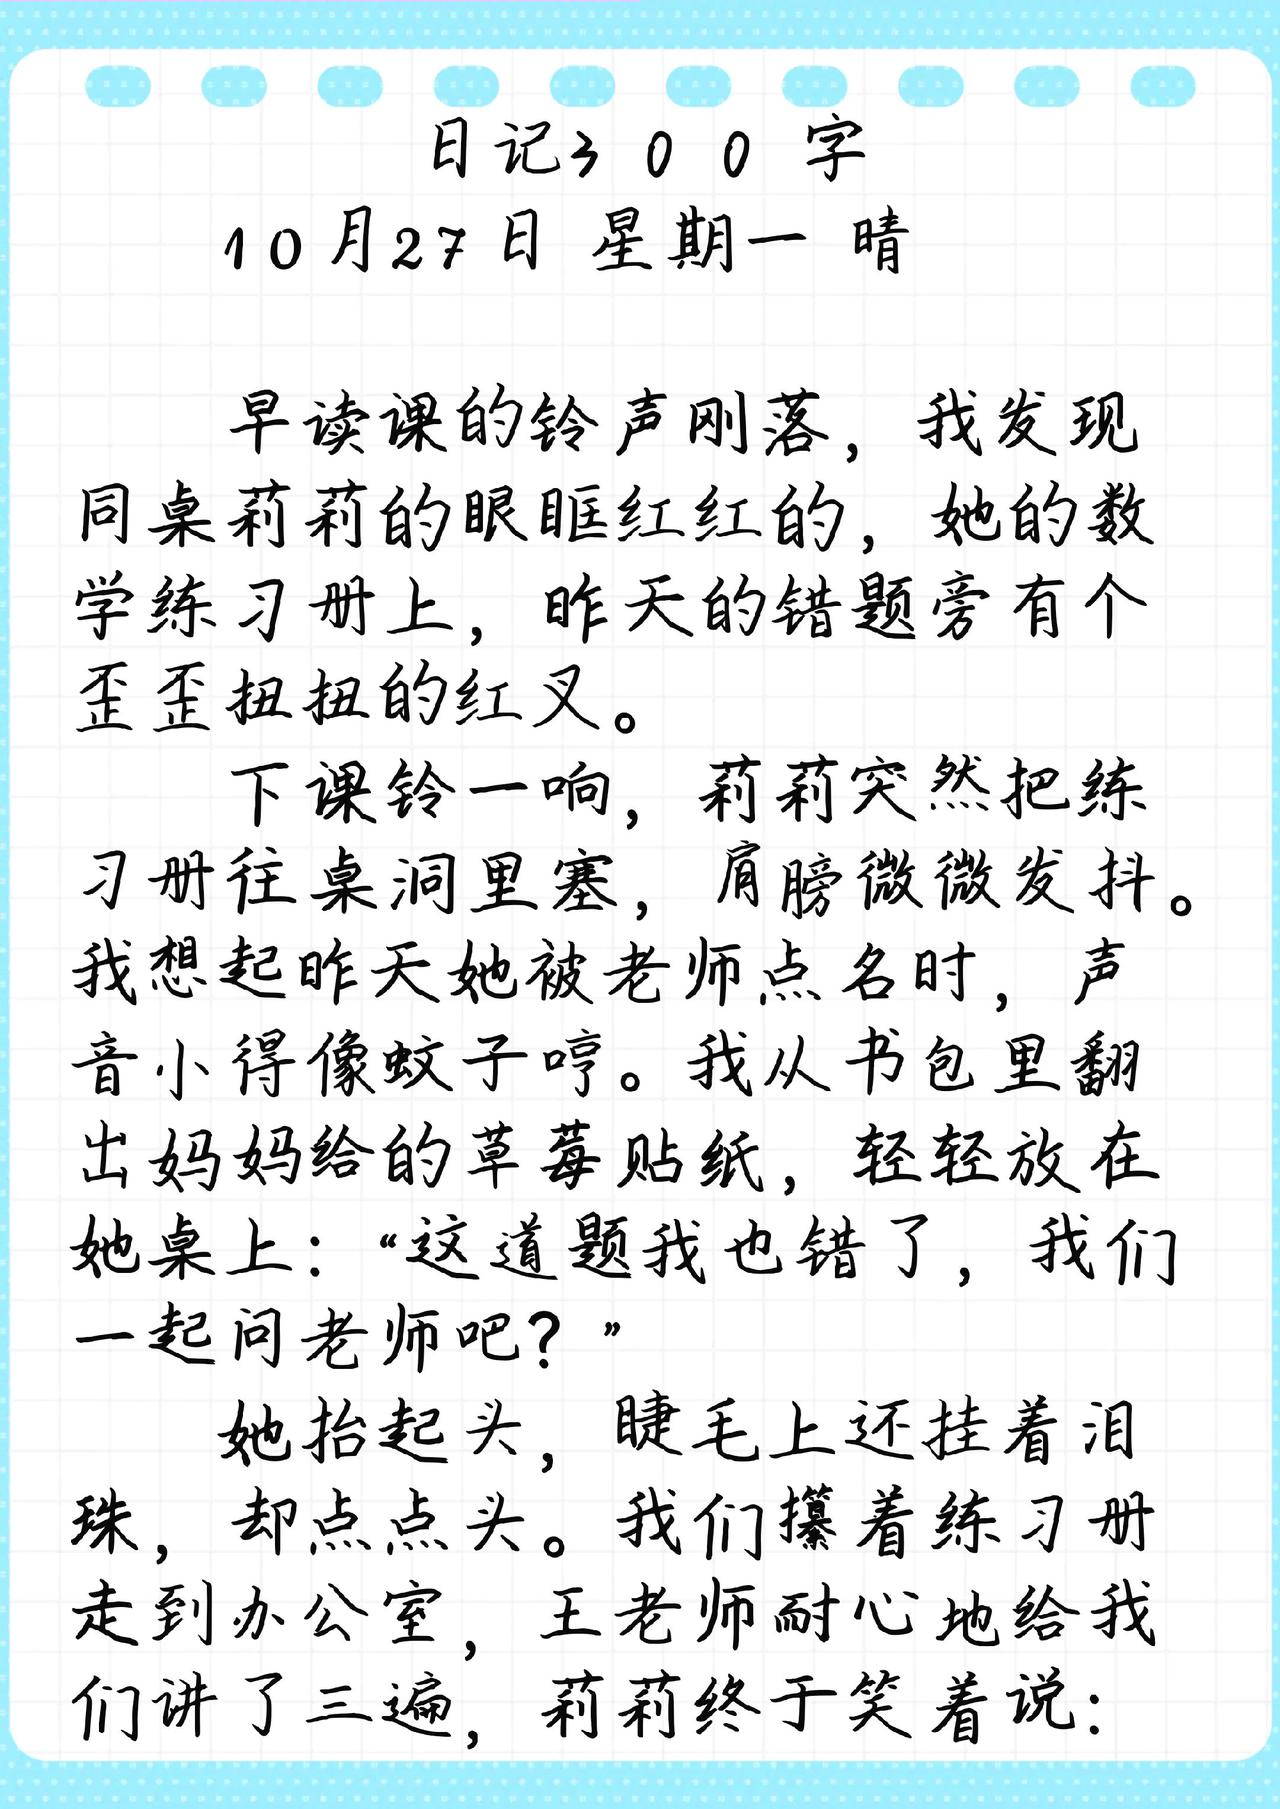 日记300字
10月27日 星期一 晴
早读课的铃声刚落，我发现
同桌莉莉的眼眶红红的，她的数
学练习册上，昨天的错题旁有个
歪歪扭扭的红叉。
下课铃一响，莉莉突然把练
习册往桌洞里塞，肩膀微微发抖。
我想起昨天她被老师点名时，声
音小得像蚊子哼。我从书包里翻
出妈妈给的草莓贴纸，轻轻放在
她桌上：“这道题我也错了，我们
一起问老师吧？”
她抬起头，睫毛上还挂着泪
珠，却点点头。我们攥着练习册
走到办公室，王老师耐心地给我
们讲了三遍，莉莉终于笑着说：